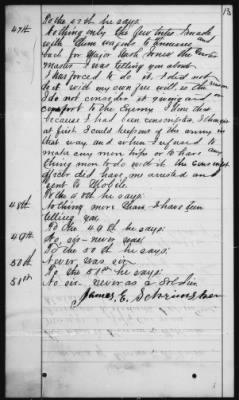 13
To the 47th he says:
47th Nothing only the few trips I made
with them wagons to Tennessee and
back for Major Nash Jones the Quarter
master I was telling you about.
I was forced to do it. I did not
do it with my own free will, so
I do not consider it giving aid and
comfort to the enemy. I knew that
because I had been conscripted. I thought
at first I could keep out of the army in
that way and when I refused to
make any more trips or to have any
thing more to do with it the conscript
officer did have me arrested and
sent to Mobile.
To the 48th he says:
48th Nothing more than I have been
telling you
To the 49th he says:
49th No, sir - never was
To the 50th he says:
50th Never was sir.
To the 51st he says:
51st No sir - never as a soldier
James E. Schrimsher